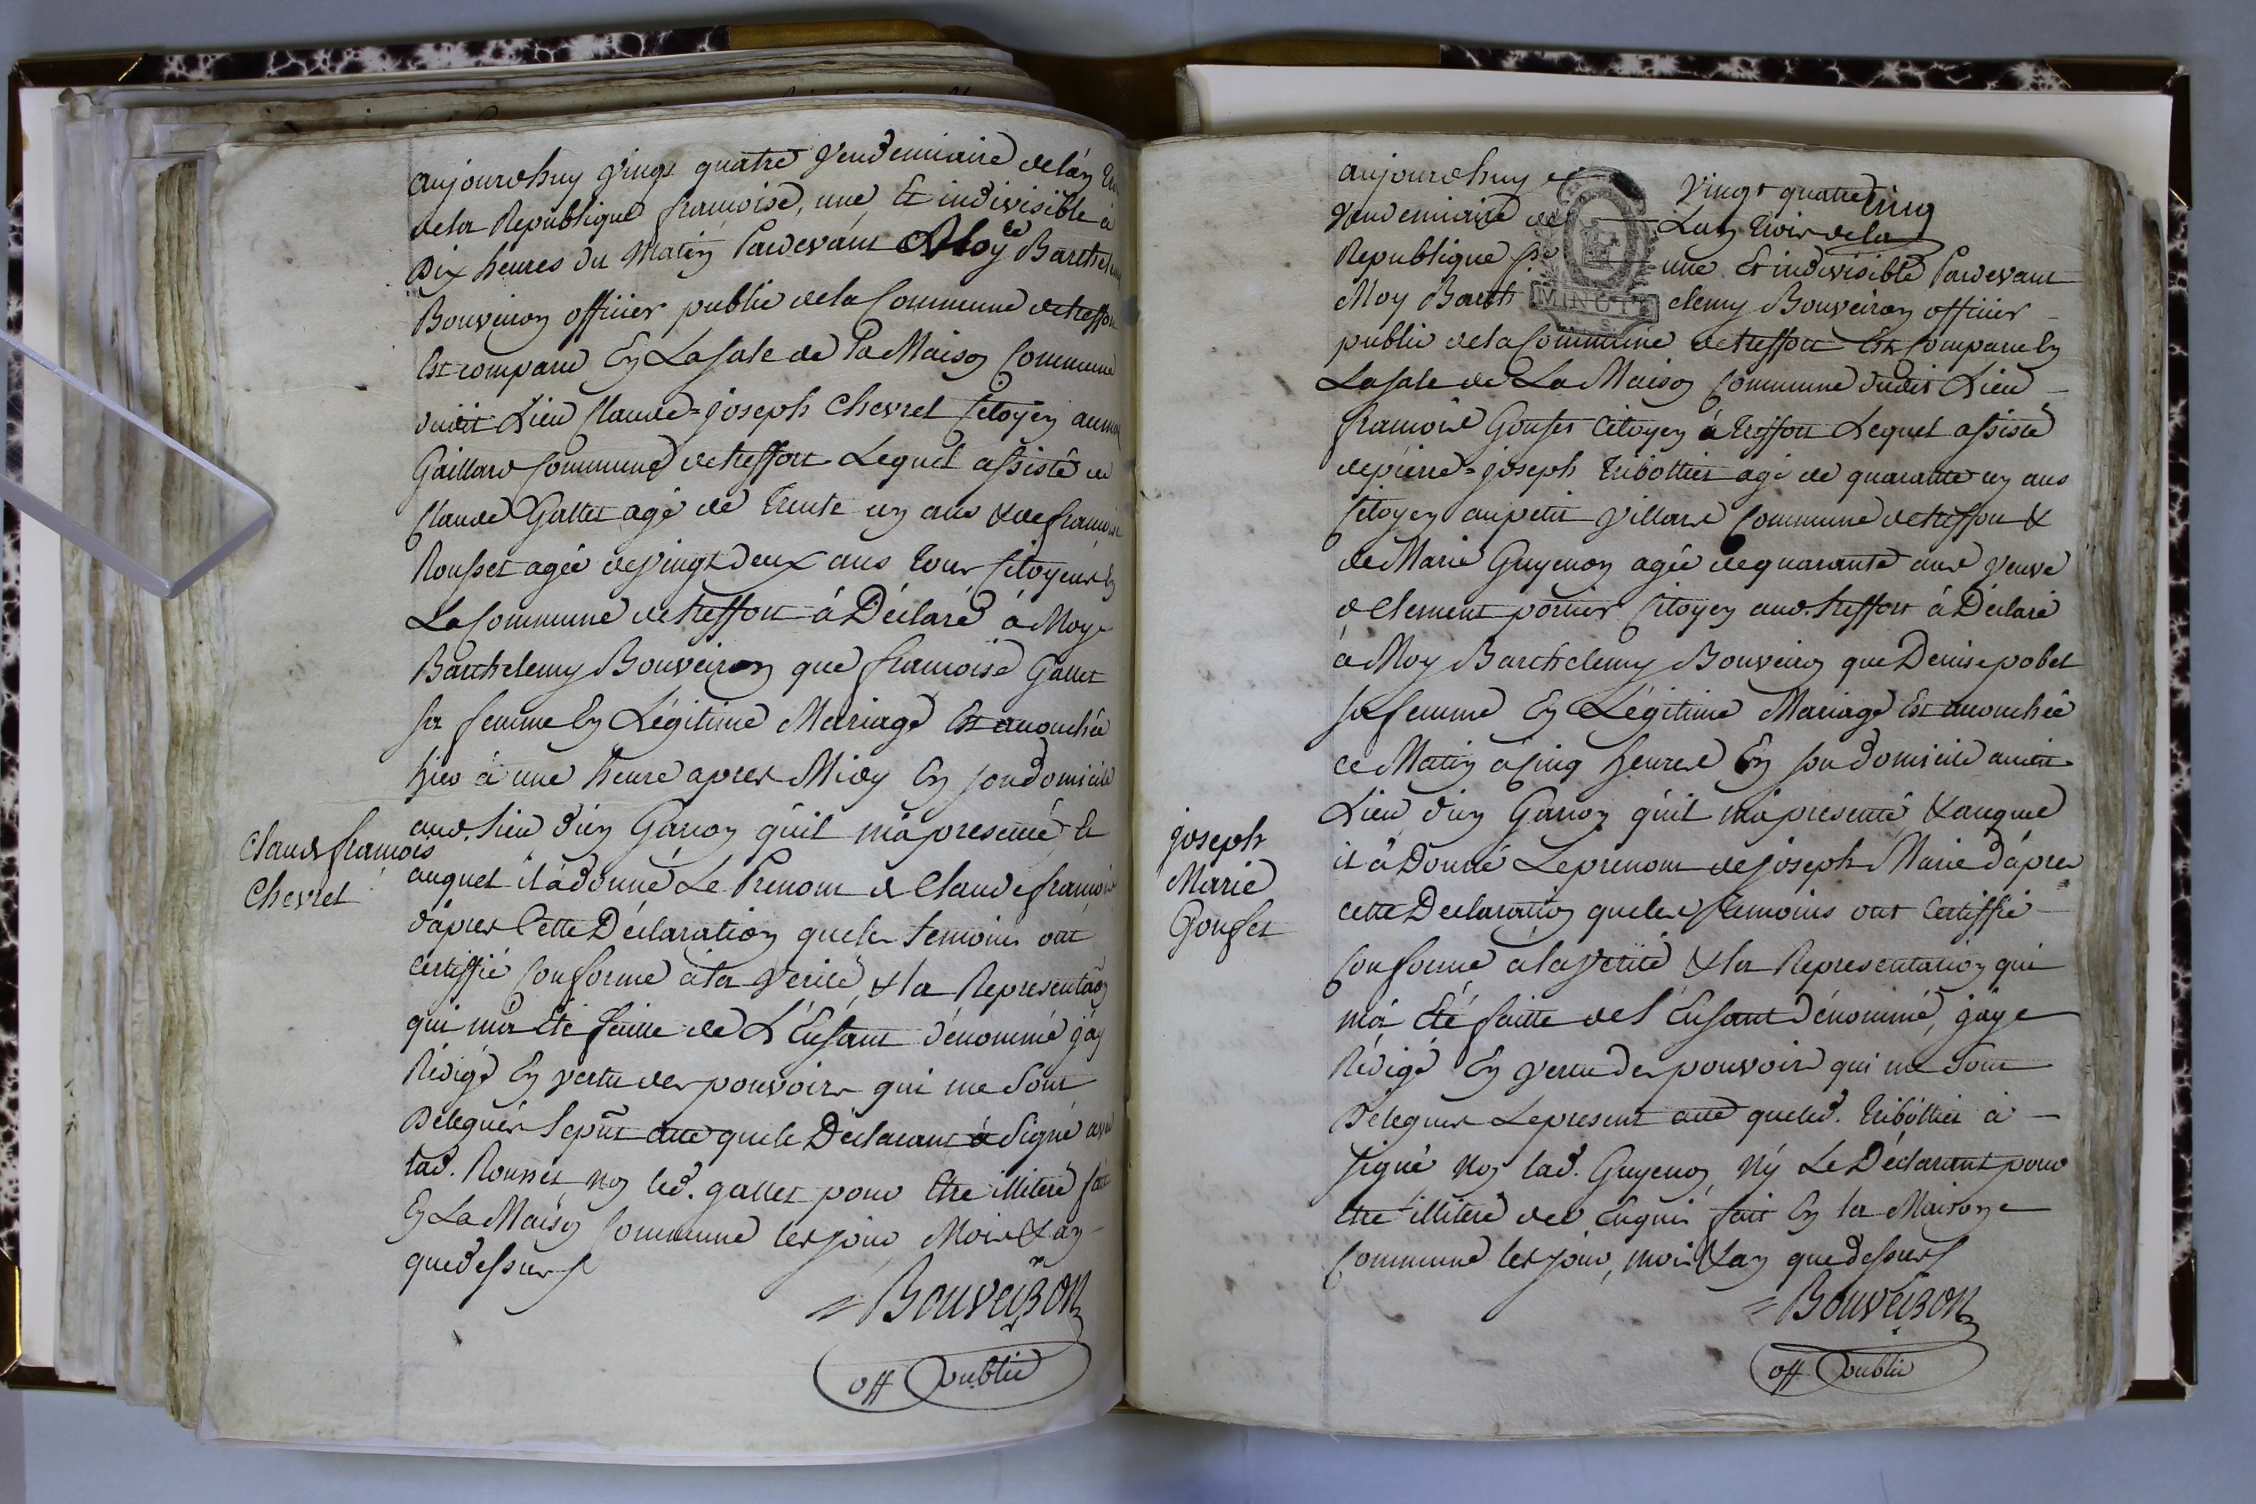 aujourdhuy vingt quatre vendemiaire de lan
de la Republique francoise, une Et indivisible à
Dix heures du Matin Pardevant Moy Barthelemy
Bouveiron officier public de la Commune de treffort
Est comparu En La sale de la Maison Commune
dudit Lieu Claude=joseph Chevret Citoyen au mon
Gaillard Commune de treffort Lequel assisté de
Claude Gallet agé de trente un ans & de francoise
Rousset agée de vingt deux ans tous Citoyens En
La Commune de treffort à Déclaré à Moy
Barthelemy Bouveiron que francoise Gallet
sa femme En Légitime Mariage Est accouchée
hier à une heure apres Midy En son domicile
aud. Lieu d'un Garçon qu'il m'a presenté &
auquel il à donné Le Prenom de Claude francois
d'apres Cette Déclaration que les temoins ont
Certiffié Conforme à la Verité, & la Representaon
qui m'a Eté faitte de L'Enfant dénommé j'ay
Rédigé En vertu des pouvoirs qui me sont
Délegués le pnt acte que le Déclarant à Signé avec
lad. Rousset, non led. gallet pour Etre illiteré fait
En La Maison Commune les jour Mois & an
que dessus
Bouveiron
off public
Claude francois
Chevret
aujourdhuy vingt quatre cinq
vendemiaire de Lan trois de la
Republique fse une Et indivisible Pardevant
Moy Barthelemy Bouveiron officier
MINUTE
public de la Commune de treffort Est Comparu En
La sale de La Maison Commune dudit Lieu
francois Gousset Citoyen à treffort Lequel assisté
de pierre=joseph tribollet agé de quarante un ans
Citoyen au petit Villard Commune de treffort &
de Marie Guyenon agée de quarante ans veuve
de Clement portier Citoyen aud. treffort à Déclaré
à Moy Barthelemy Bouveiron que Denise pobel
sa femme En Légitime Mariage Est accouchée
ce Matin à Cinq heures En son domicile audit
Lieu d'un Garçon qu'il m'a presenté, & auquel
il à Donné Le prenom de joseph Marie d'apres
cette Declaration que les temoins ont Certiffié
Conforme à la Verité & la Representation qui
m'a Eté faitte de l'Enfant dénommé, j'ay
Rédigé En Vertu des pouvoirs qui me sont
Délegués Le present acte que led. tribollet à
signé non lad. Guyenon, Ny Le Déclarant pour
Etre illiteré de ce Enquis fait En la Maison
Commune les jour, mois & an que dessus
Bouveiron
off public
joseph
Marie
Gousset